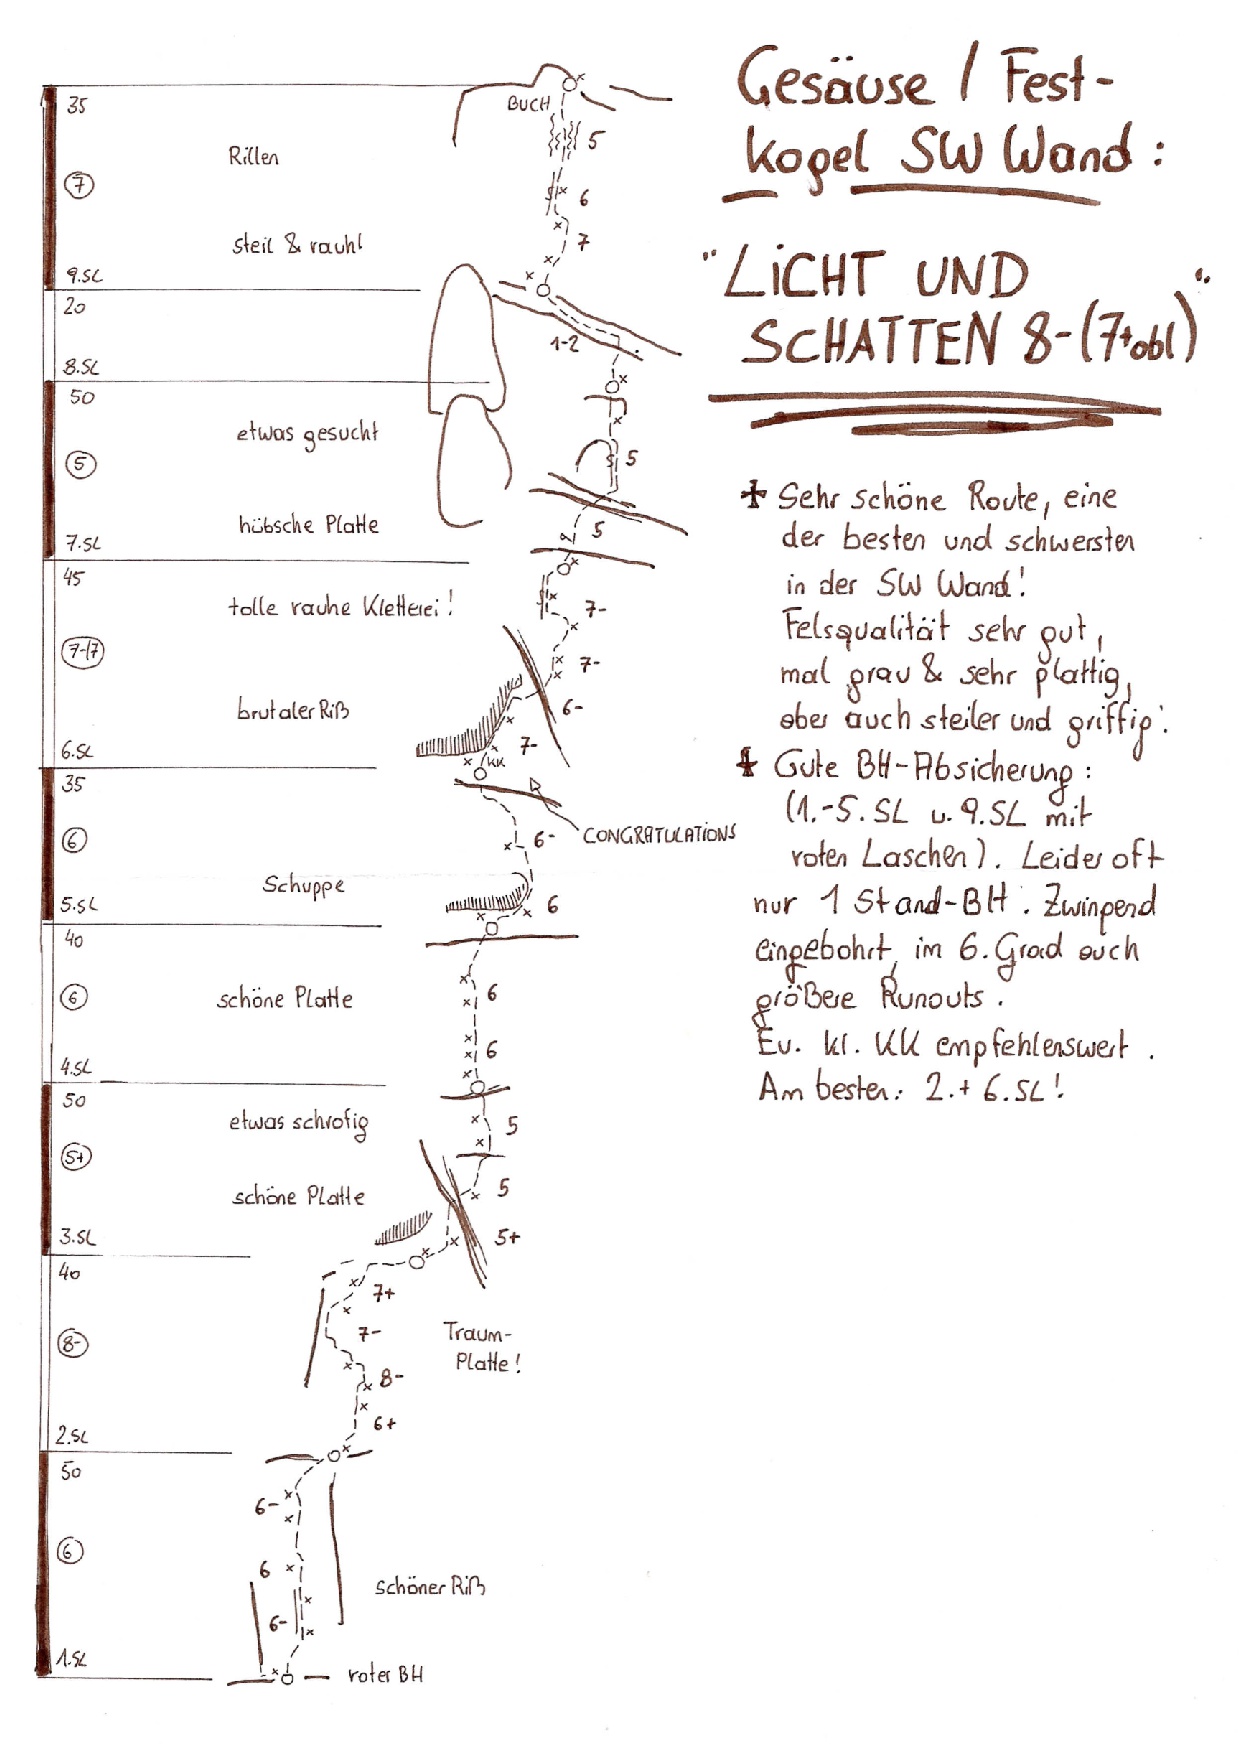 Gesäuse / Fest-
kogel SW Wand:
"LiCHT UND
SCHATTEN 8-(7+obl)"
+ Sehr schöne Route, eine
der besten und schwersten
in der SW Wand!
Felsqualität sehr gut,
mal grau & sehr plattig,
aber auch steiler und griffig.
+ Gute BH-Absicherung:
(1.-5. SL u. 9. SL mit
roten Laschen). Leider oft
nur 1 Stand-BH. Zwingend
eingebohrt, im 6. Grad auch
größere Runouts.
Ev. kl. KK empfehlenswert.
Am besten: 2.+ 6. SL!
35
BUCH
5
Rillen
7
6
steil & rauh!
7
9.SL
20
1-2
8.SL
50
etwas gesucht
5
5
hübsche Platte
5
7.SL
45
tolle rauhe Kletterei!
7-
7-(7
7-
brutaler Riß
6-
7-
6.SL
KK
35
6
6-
CONGRATULATIONS
Schuppe
5.SL
6
40
6
schöne Platte
6
6
4.SL
50
etwas schrofig
5
5+
schöne Platte
5
3.SL
5+
40
7+
8-
7-
Traum-
Platte!
8-
2.SL
6+
50
6-
6
6
schöner Riß
6-
1.SL
roter BH